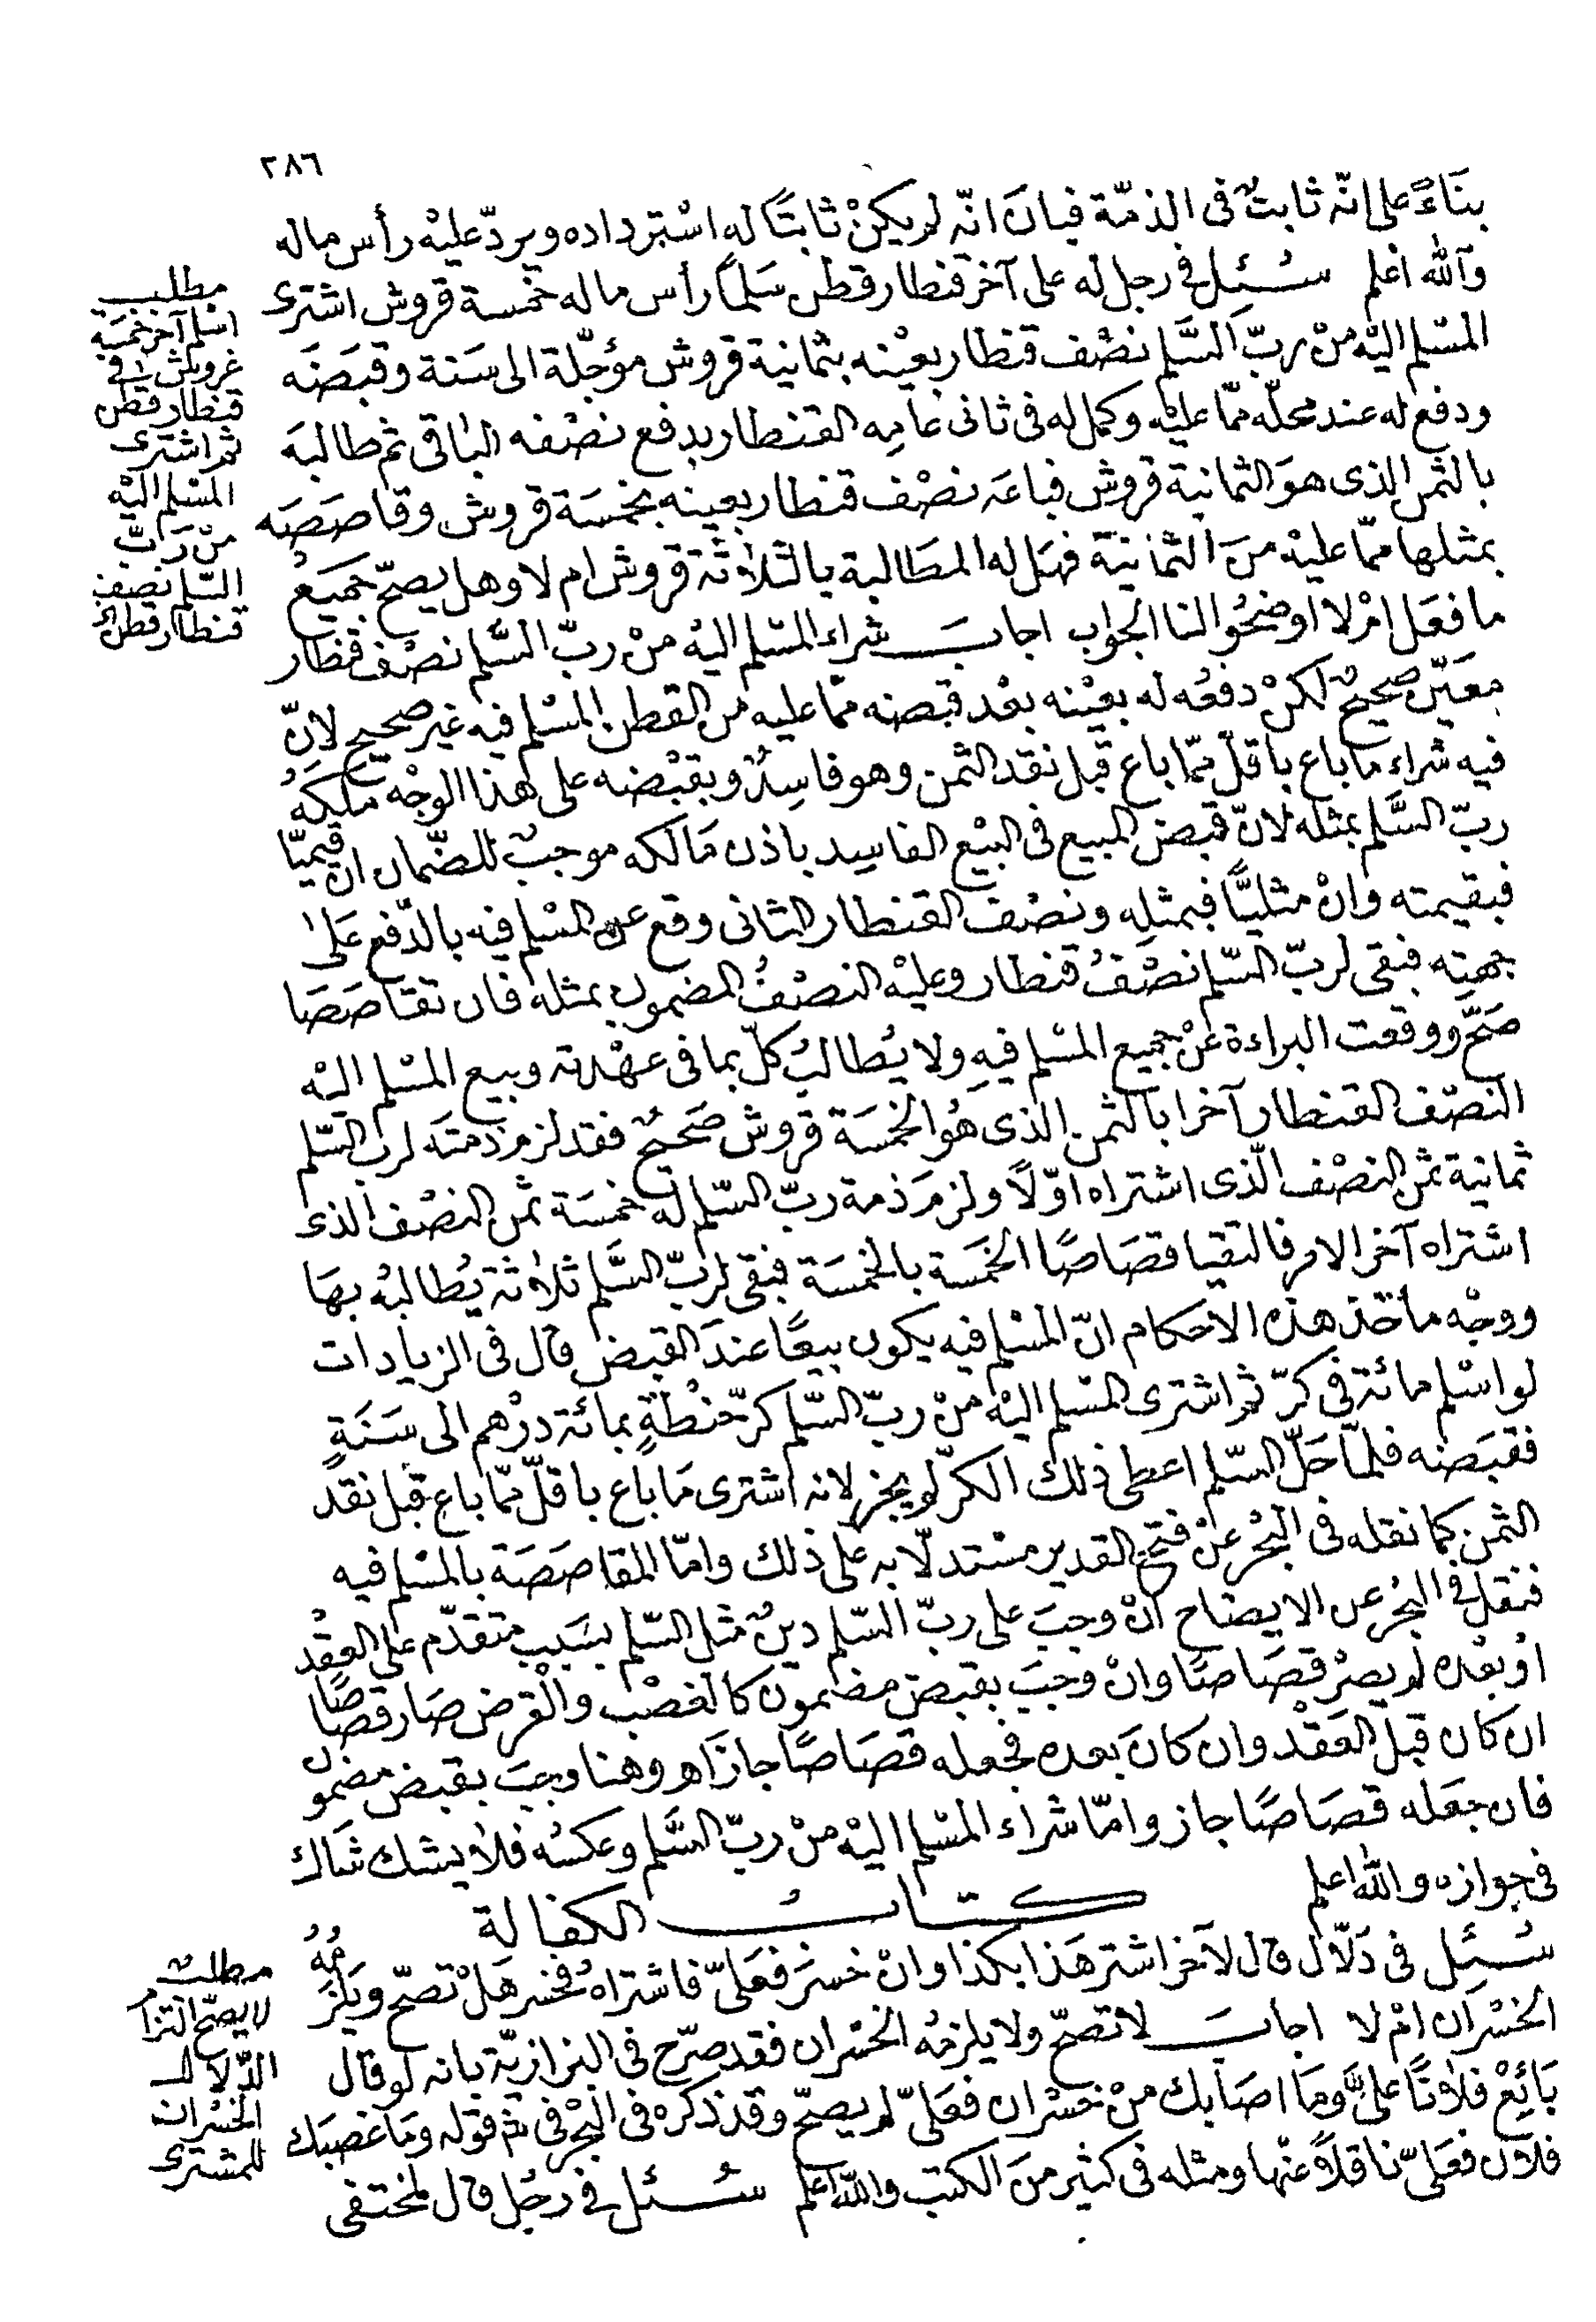 ٢٨٦
بنَاءً على انّه ثابتٌ فى الذمّة فبان انّه لم يكنْ ثابتًا له اسْترداده ويردّ عليْه رأس ماله
والله اعلم سُئِل فى رجل له على آخر قنطار قطن سَلمًا رأس ماله خمسة قروش اشترى
المسْلم اليْه منْ ربّ السَّلم نصْف قنطار بعيْنه بثمانية قروش مؤجّلة الى سَنة وقبَضَه
ودفع له عند محلّه ممّا عليْه وكمل له فى ثانى عامِه القنطار بدفع نصْفه الباقى ثم طالبَه
بالثمن الذى هوَ الثمانية قروش فباعَه نصْف قنطار بعينه بخمسَة قروش وقاصَصَه
بمثلها ممّا عليْه منَ الثمانية فهَل له المطَالبة بالثلاثة قروش ام لا وهل يصحّ جميَعُ
ما فعَل امْ لا اوضحُوا لنا الجواب اجابَ شراء المسْلم اليْه منْ ربّ السَّلم نصْف قنطار
معَيّن صحيحٌ لكنْ دفعُه له بعيْنه بعْد قبضه ممّا عليه من القطن المسْلم فيه غير صحيح لانّ
فيه شراء ما باع باقلّ ممّا باع قبل نقد الثمن وهو فاسِدٌ وبقبْضه على هذا الوجْه ملكَهُ
ربّ السَّلم بمثله لانّ قبض المبيع فى البيْع الفاسِد باذن مَالكه موجبٌ للضّمان انْ قيميّا
فبقيمته وانْ مثليًّا فبمثلِه ونصْف القنطار الثانى وقع عن المسْلم فيه بالدّفع عَلى
جهتِه فبقى لربّ السّلم نصْفُ قنطار وعليْه النصْفُ المضمون بمثله فان تقاصَصَا
صَحَّ ووقعت البراءة عنْ جميع المسْلم فيهِ ولا يُطالبُ كلّ بما فى عهْدته وبيع المسْلم اليْه
النصْف القنطار آخرا بالثمن الذى هُو الخمسَة قروش صَحيحٌ فقد لزم ذمتَه لربّ السّلم
ثمانية ثمن النصْف الّذى اشتراه اوّلاً ولزمَ ذمة ربّ السّلم له خمسَة ثمن النصْف الذى
اشتراه آخر الامر فالتقيا قصَاصًا الخمَسة بالخمسَة فبقى لربّ السَّلم ثلاثة يُطالبُه بهَا
ووجْه مأخذ هذه الاحكام انّ المسْلم فيه يكون بيعًا عندَ القبض قال فى الزيادات
لو اسْلم مائة فى كرّ ثم اشترى المسْلم اليْه منْ ربّ السّلم كرّ حنْطةٍ بمائة درْهم الى سَنَةٍ
فقبَضه فلمّا حَلّ السّلم اعطى ذلك الكرّ لم يجز لانه اشترى مَا باع باقلّ ممّا باع قبل نقد
الثمن كما نقله فى البحْر عنْ فتح القدير مسْتدلّا به على ذلك وامّا المقاصَصَة بالمسْلم فيه
فنقل فى البحْر عن الايضاح انْ وجبَ على ربّ السّلم دينٌ مثل السّلم بسَبب متقدّم على العقْد
اوْ بعْده لم يصرْ قصَاصًا وانْ وجبَ بقبض مضمون كالغصْب والقرض صَار قصَاصًا
ان كان قبل العَقْد وان كانَ بعده فجعله قصَاصًا جاز اهـ وهنا وجبَ بقبض مضمون
فان جعَله قصَاصًا جاز وامّا شراء المسْلم اليْه منْ ربّ السَّلم وعكسُه فلا يشك شاك
فى جوازه والله اعلم
كتابُ الكفالة
سُئِل فى دَلّال قال لآخر اشتر هَذا بكذا وانْ خسرَ فعَلىّ فاشتراهُ فخسر هَلْ تصحّ ويَلزَمُهُ
الخسْران امْ لا اجابَ لا تصحّ ولا يلزمُه الخسْران فقد صرّح فى البزازيّة بانه لو قال
بَائِعْ فلانًا علىَّ ومَا اصَابك منْ خسْران فعَلىّ لم يصحّ وقد ذكره فى البحْر فى شرح قوله ومَا غصبَك
فلان فعَلىّ ناقلاً عنْها ومثله فى كثير منَ الكتب والله اعلم سُئل فى رجُل قال لمختفى
مطلب
اسلم آخر خمسَة
غروش فى
قنطار قطن
ثم اشترى
المسْلم اليْه
منْ رَبّ
السّلم نصف
قنطار قطن
مطلبٌ
لا يصحّ التزام
الدّلال
الخسْران
للمشترى